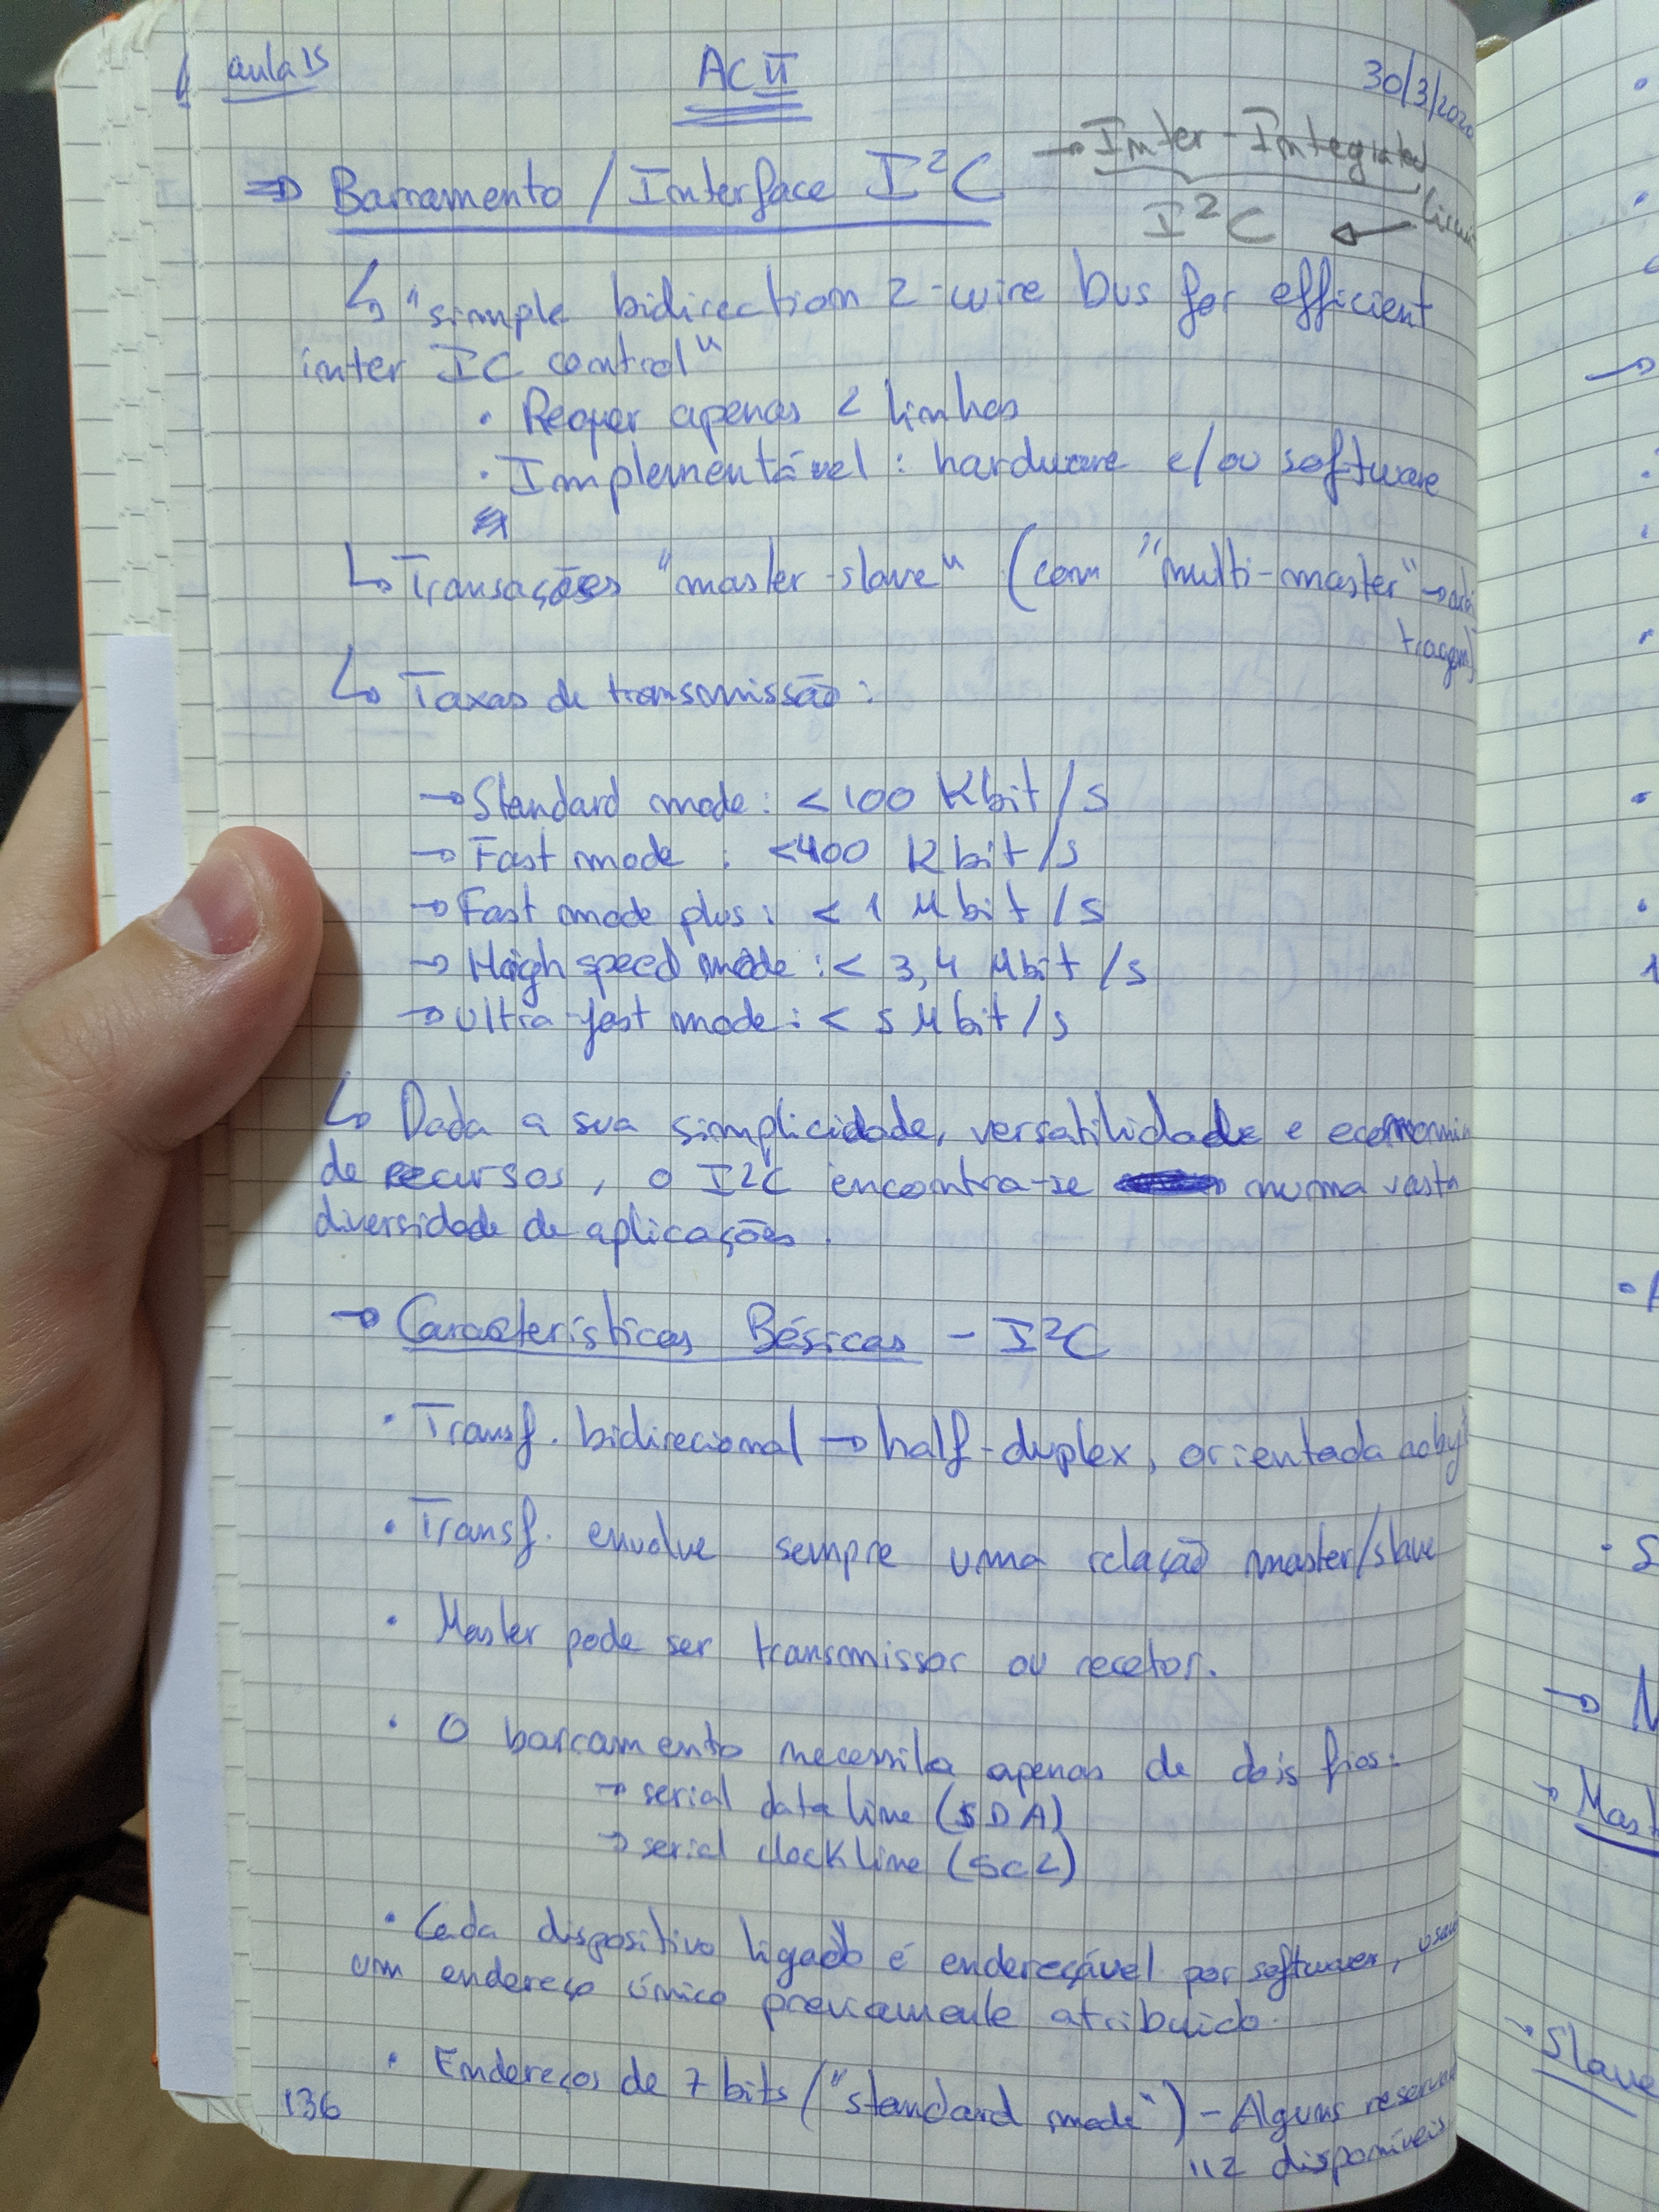 aula 15
AC II
30/3/2020
⇒ Barramento / Interface I²C
→ Inter-Integrated
Circuit
I²C ←
↳ "simple bidirection 2-wire bus for efficient
inter IC control"
• Requer apenas 2 linhas
• Implementável : hardware e/ou software
↳ Transações "master-slave" (com "multi-master" → arbi
tragem)
↳ Taxas de transmissão :
→ Standard mode : < 100 Kbit/s
→ Fast mode : < 400 Kbit/s
→ Fast mode plus : < 1 Mbit/s
→ High speed mode : < 3,4 Mbit/s
→ Ultra-fast mode : < 5 Mbit/s
↳ Dada a sua simplicidade, versatilidade e economia
de recursos, o I²C encontra-se numa vasta
diversidade de aplicações.
→ Características Básicas - I²C
• Transf. bidirecional → half-duplex, orientada ao byt
• Transf. envolve sempre uma relação master/slave
• Master pode ser transmissor ou recetor.
• O barramento necessita apenas de dois fios:
→ serial data line (SDA)
→ serial clock line (SCL)
• Cada dispositivo ligado é endereçável por software,
um endereço único previamente atribuído.
• Endereços de 7 bits ("standard mode") - Alguns
112 disponíveis
136
→
→ Mast
→ Slave